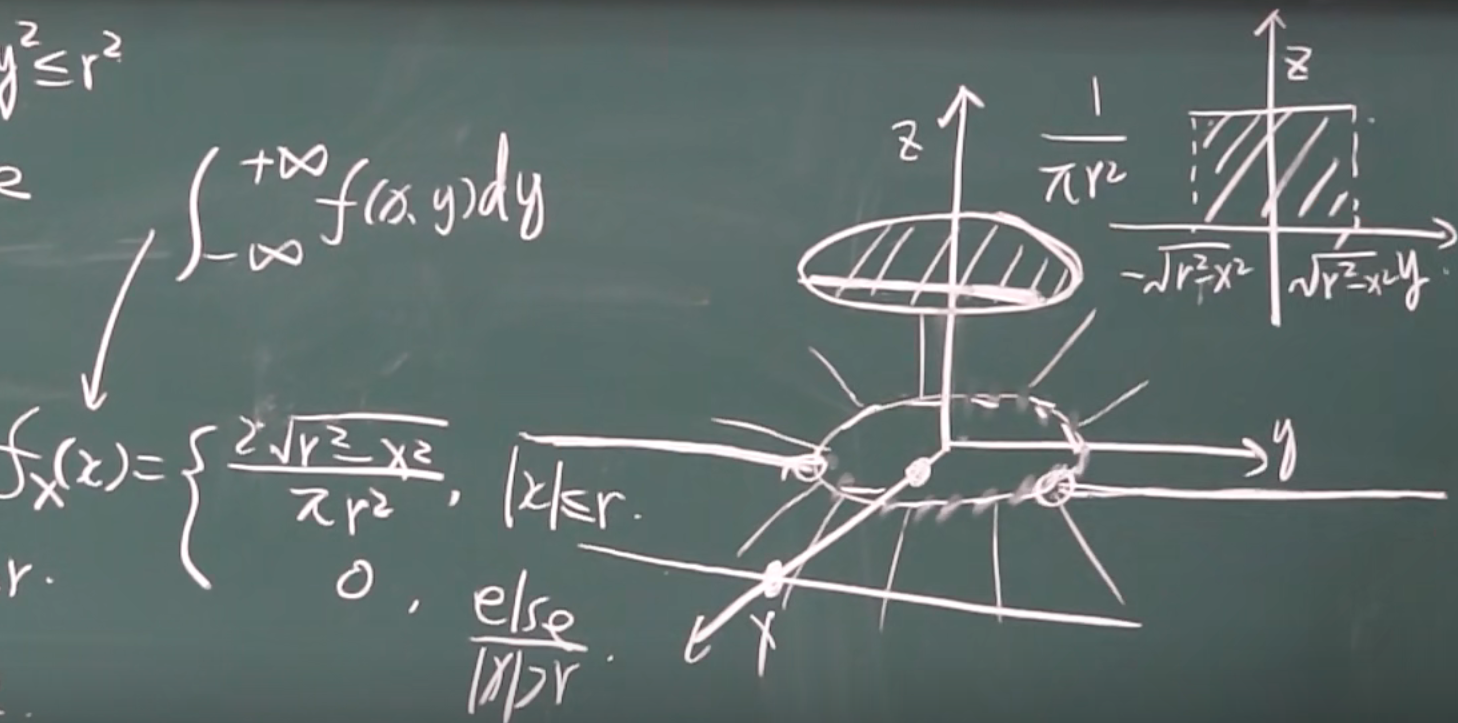 y²≤r²
e
∫_{-∞}^{+∞} f(x,y)dy
f_X(x)={ 2√(r²-x²)/(πr²), |x|≤r.
r.
0, else
|x|>r.
z
y
x
1/(πr²)
z
-√(r²-x²)
√(r²-x²)
y